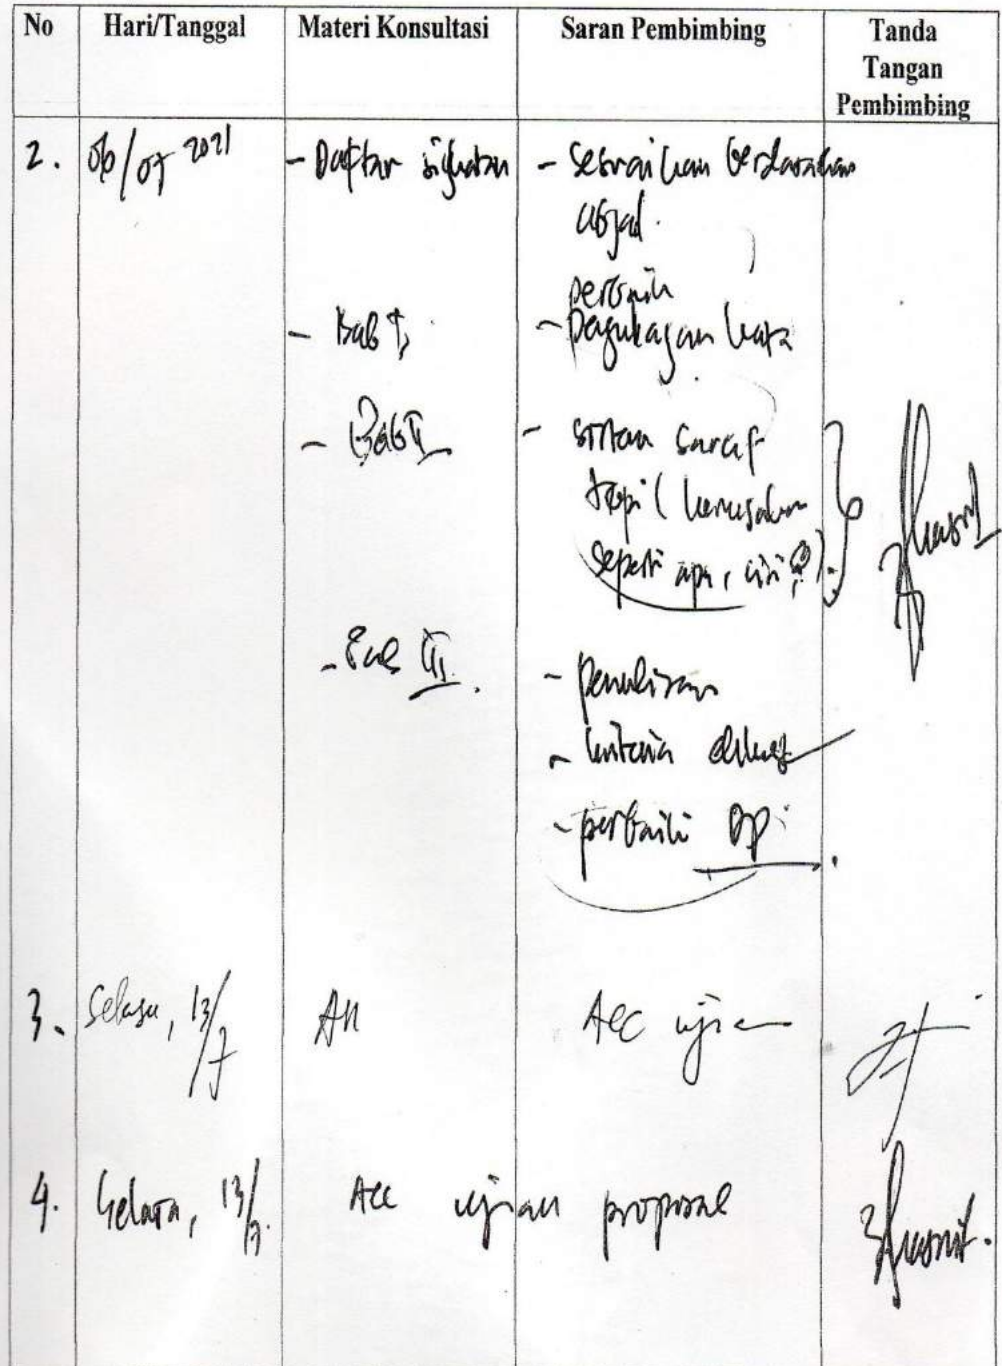 No Hari/Tanggal Materi Konsultasi Saran Pembimbing Tanda
Tangan
Pembimbing
2. 06/07 2021 - Daftar singkatan - Sesuaikan berdasarkan
abjad.
perbaiki
- Bab I, - pengulangan kata
- Bab II - saraf
tepi (kerusakan
seperti apa, ciri?).
- Bab III. - penulisan
- kriteria
- perbaiki DP.
3. Selasa, 13/7 Acc ujian
4. Selasa, 13/7. Acc ujian proposal